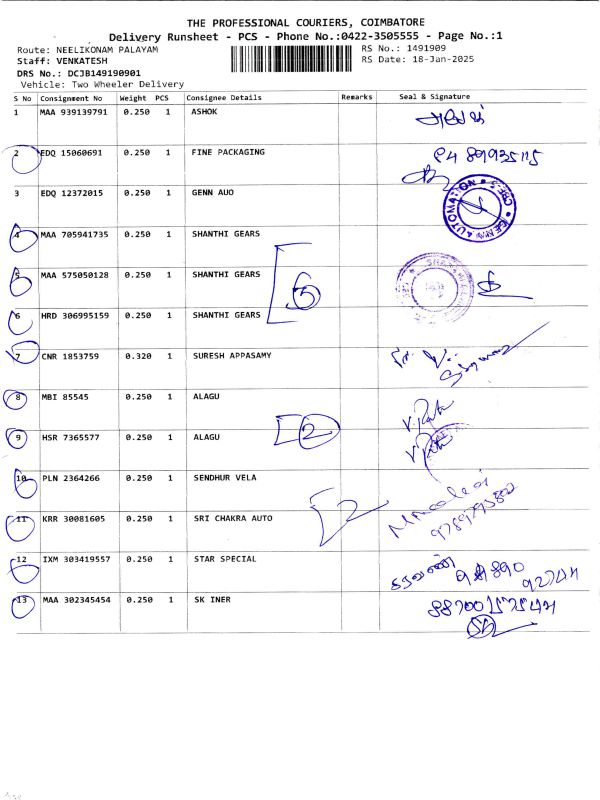 THE PROFESSIONAL COURIERS, COIMBATORE
Delivery Runsheet - PCS - Phone No.:0422-3505555 - Page No.:1
Route: NEELIKONAM PALAYAM RS No.: 1491909
Staff: VENKATESH RS Date: 18-Jan-2025
DRS No.: DCJB149190901
Vehicle: Two Wheeler Delivery
S No Consignment No Weight PCS Consignee Details Remarks Seal & Signature
1 MAA 939139791 0.250 1 ASHOK
2 EDQ 15060691 0.250 1 FINE PACKAGING
3 EDQ 12372015 0.250 1 GENN AUO
4 MAA 705941735 0.250 1 SHANTHI GEARS
5 MAA 575050128 0.250 1 SHANTHI GEARS
5
6 HRD 306995159 0.250 1 SHANTHI GEARS
7 CNR 1853759 0.320 1 SURESH APPASAMY
8 MBI 85545 0.250 1 ALAGU
9 HSR 7365577 0.250 1 ALAGU 2
10 PLN 2364266 0.250 1 SENDHUR VELA
2
11 KRR 30081605 0.250 1 SRI CHAKRA AUTO
12 IXM 303419557 0.250 1 STAR SPECIAL
13 MAA 302345454 0.250 1 SK INER